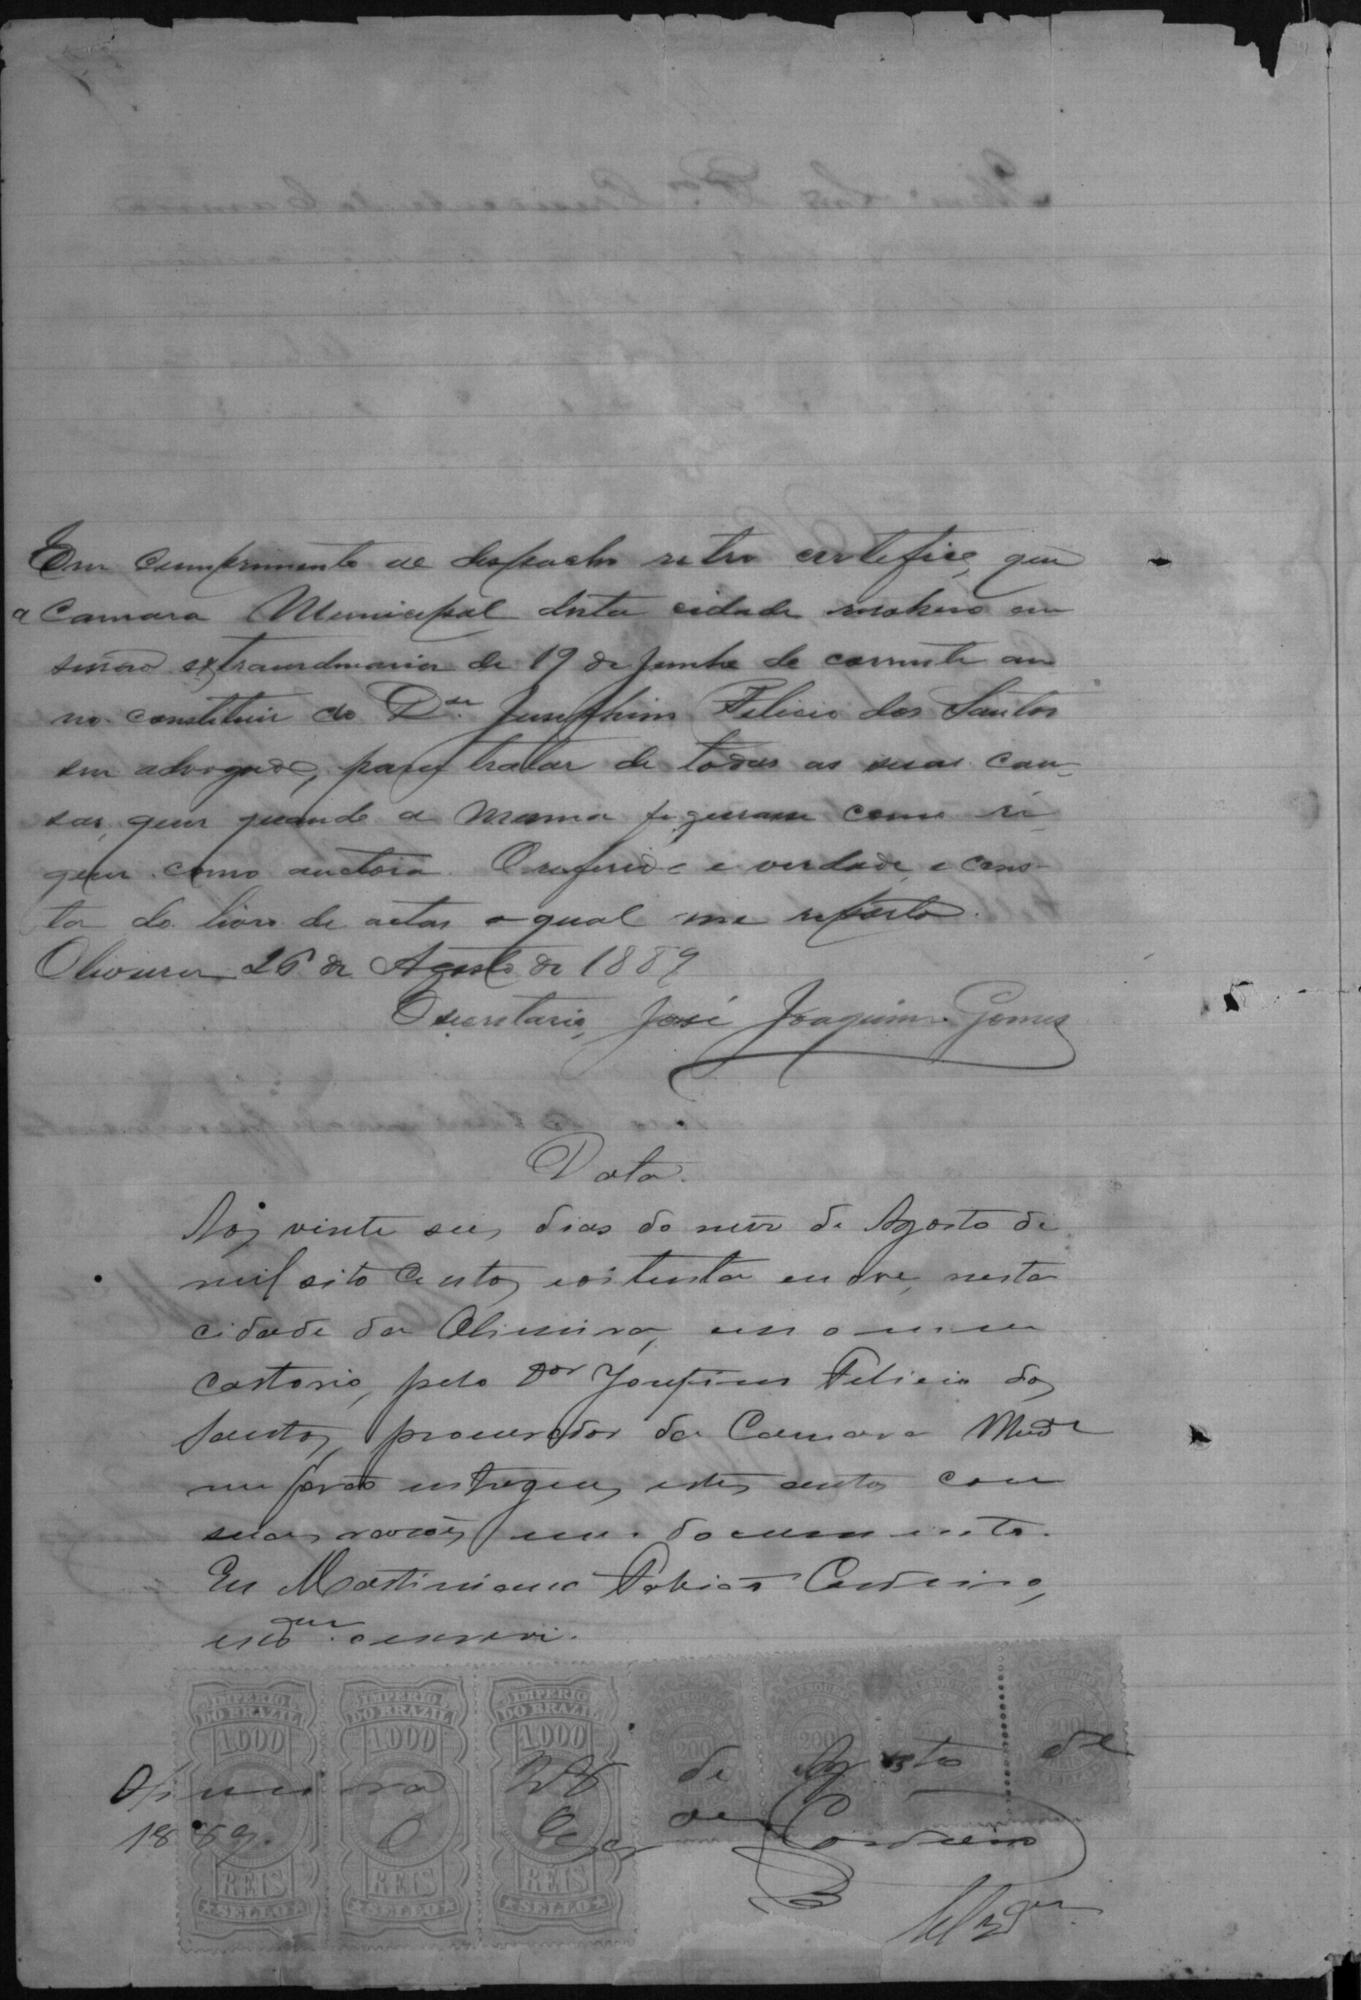 Em cumprimento ao despacho retro certifico, que
a Camara Municipal desta cidade resolveo em
sessão extraordinaria de 19 de Junho do corrente an
no constituir ao Dor. Josephino Felicio dos Santos
seu advogado, para tratar de todas as suas cau-
sas, quer quando a mesma figuram como ré
quer como auctora. O referido é verdade e cons-
ta do livro de actas o qual me reporto.
Oliveira 26 de Agosto de 1889
O secretario, José Joaquim Gomes
Data.
Aos vinte seis dias do mez de Agosto de
mil oito centos e oitenta e nove, nesta
cidade da Oliveira, em o meu
cartorio, pelo Dor Josefino Felicio dos
Santos, procurador da Camara
me forão entregues estes autos com
suas razões e um documento.
Eu Martiniano Cordeiro,
escrevi.
IMPERIO DO BRAZIL 1000 REIS SELLO
IMPERIO DO BRAZIL 1000 REIS SELLO
IMPERIO DO BRAZIL 1000 REIS SELLO
THESOURO 200
THESOURO 200
THESOURO 200
THESOURO 200
Oliveira 28 de Agosto de
1889. O Cordeiro